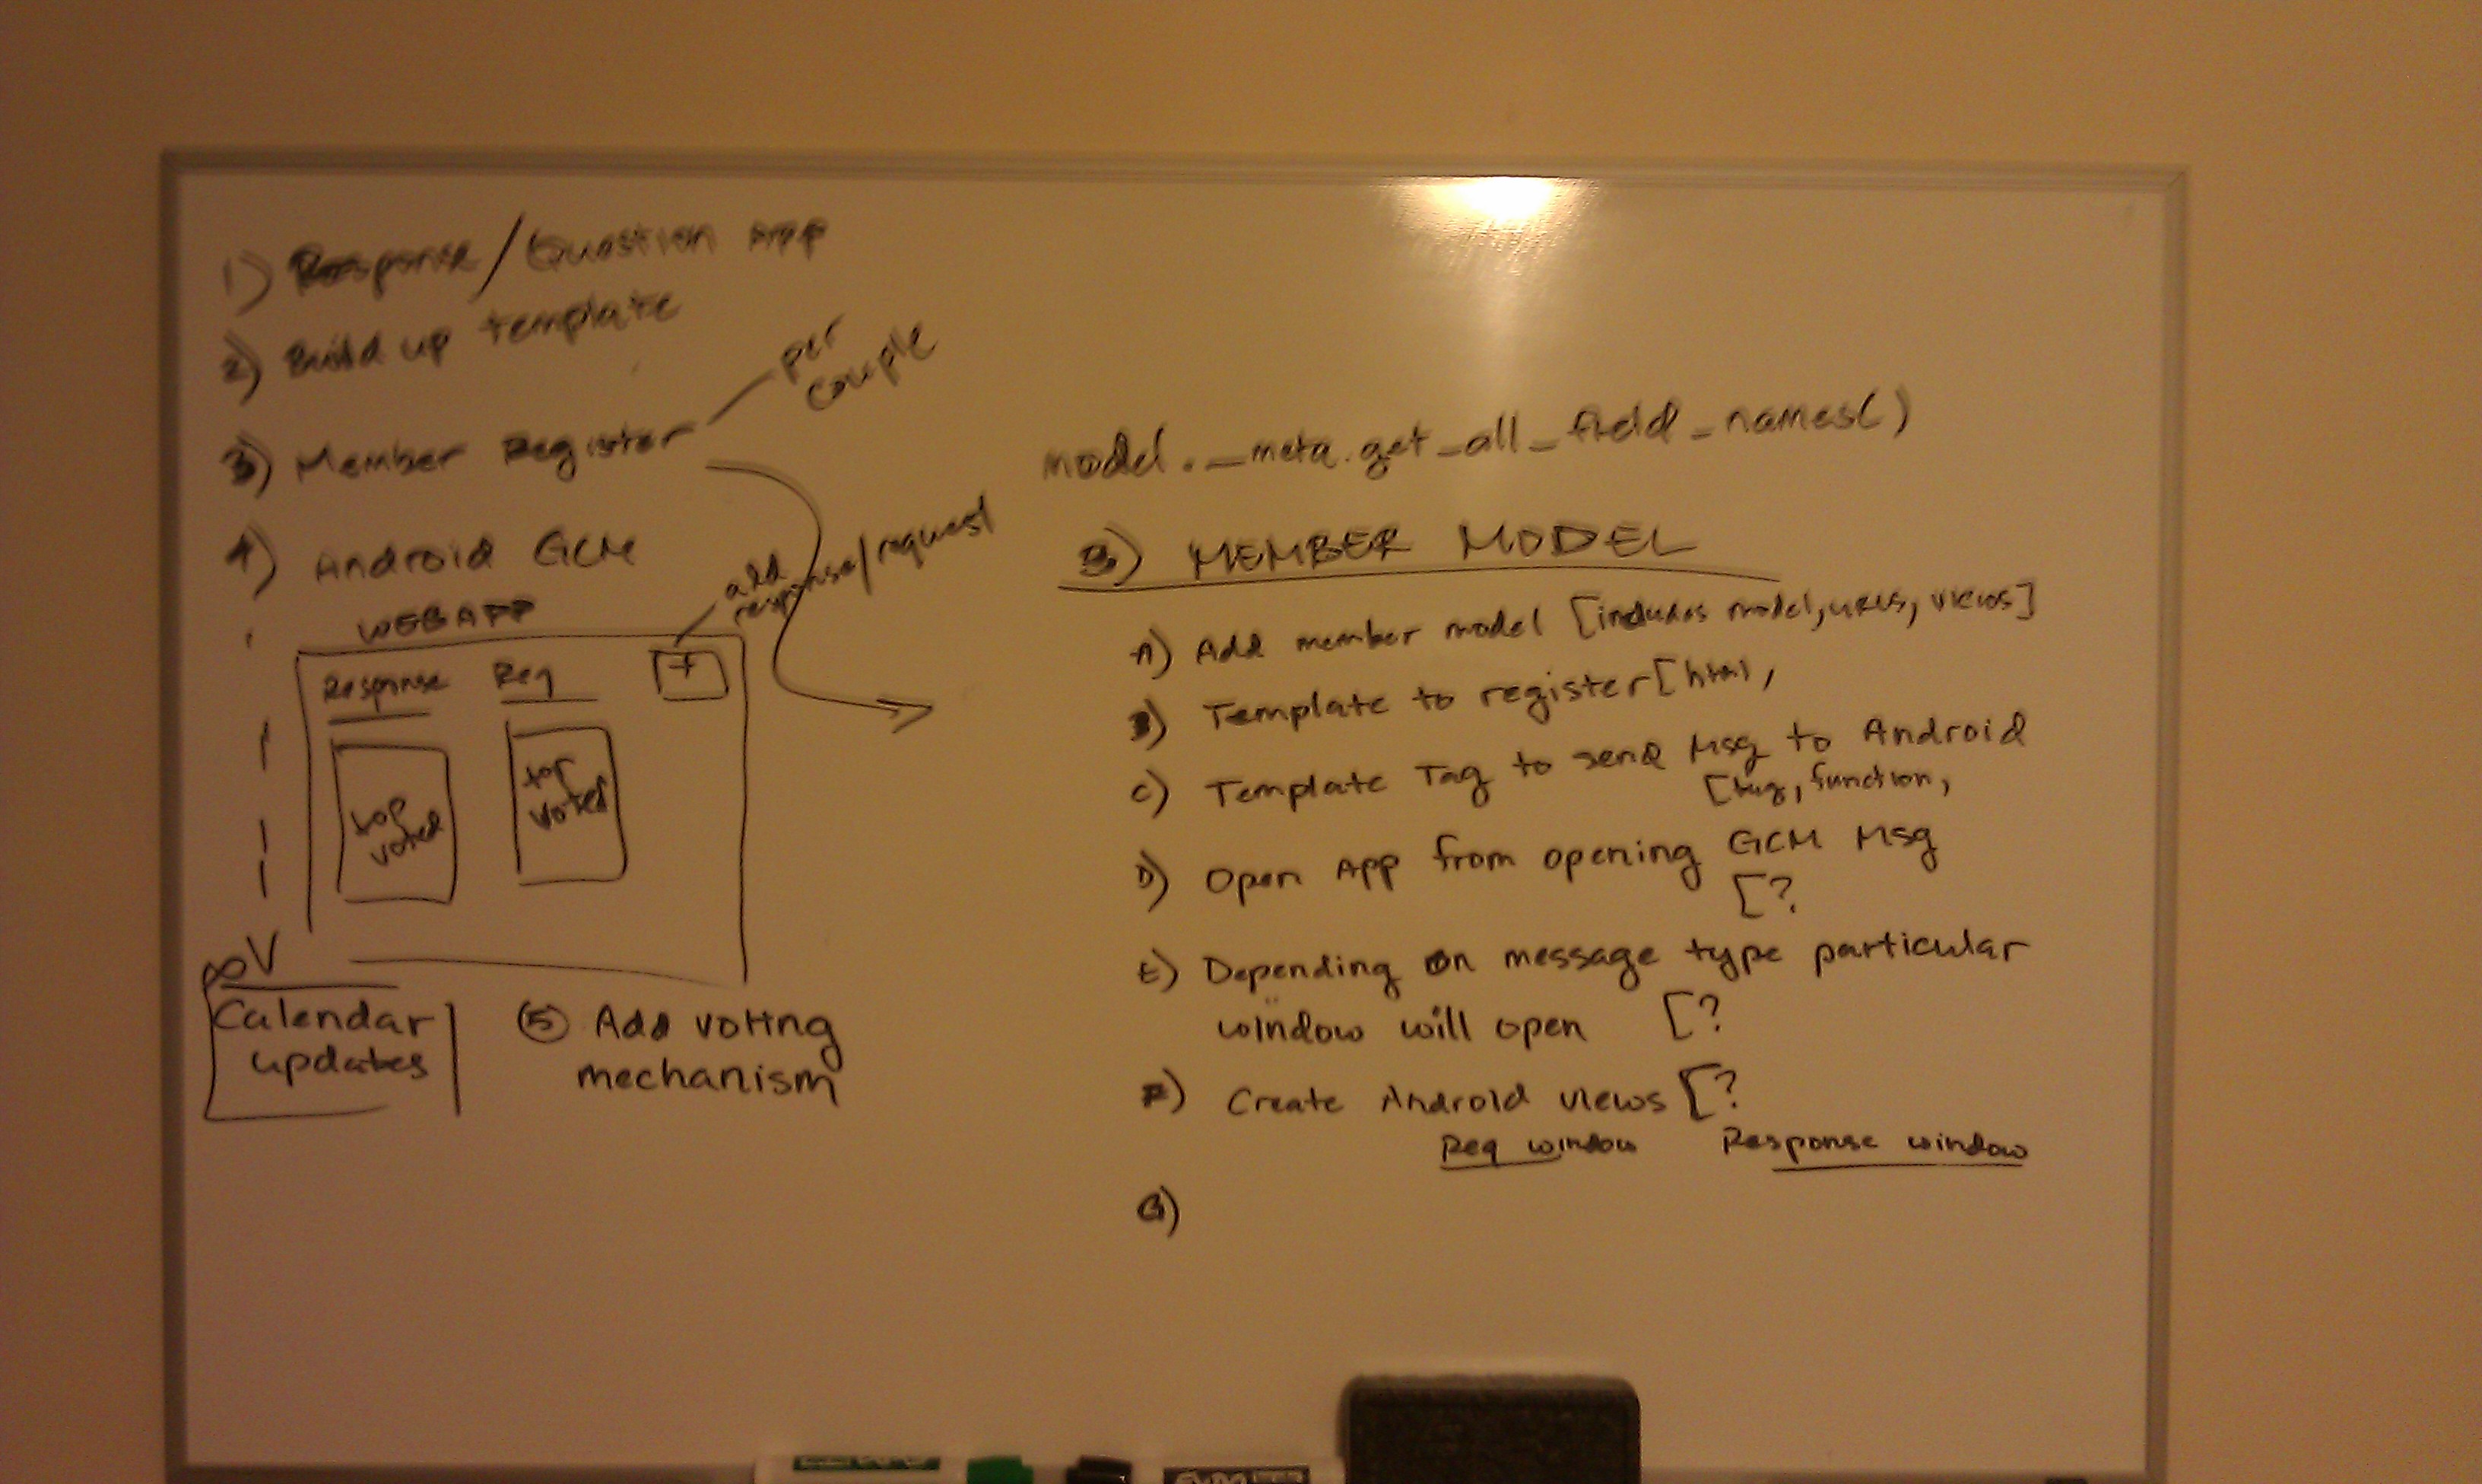 1) Response / Question App
2) Build up template
3) Member Register
per
couple
4) Android GCM
add
response/request
WEBAPP
Response Req +
top
voted
top
voted
∞
Calendar
updates
⑤ Add voting
mechanism
model._meta.get_all_field_names()
3) MEMBER MODEL
A) Add member model [includes model, URLs, views]
B) Template to register [html,
C) Template Tag to send Msg to Android
[tag, function,
D) Open App from opening GCM Msg
[?
E) Depending on message type particular
window will open [?
F) Create Android views [?
Req window Response window
G)
EXPO